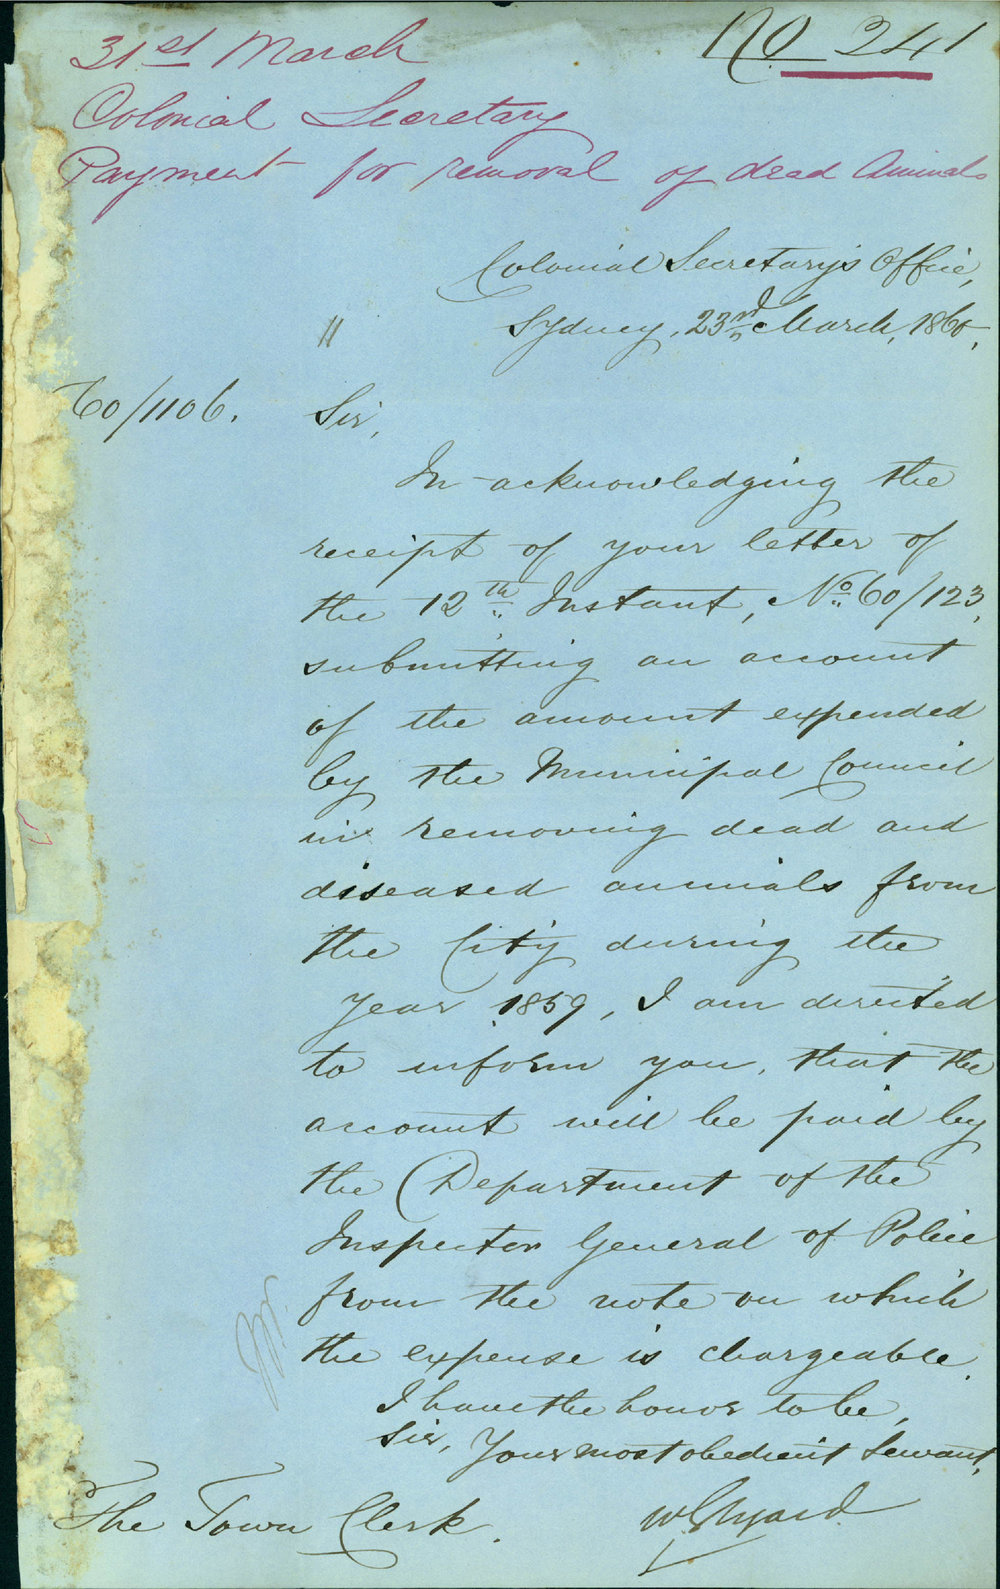 No 241
31st March
Colonial Secretary
Payment for removal of dead Animals
Colonial Secretary's Office,
Sydney, 23rd March, 1860,
"
60/1106.
Sir,
In acknowledging the
receipt of your letter of
the 12th Instant, No. 60/123,
submitting an account
of the amount expended
by the Municipal Council
in removing dead and
diseased animals from
the City during the
year 1859, I am directed
to inform you, that the
account will be paid by
the Department of the
Inspector General of Police
from the vote on which
the expense is chargeable.
I have the honor to be,
Sir, Your most obedient Servant,
The Town Clerk.